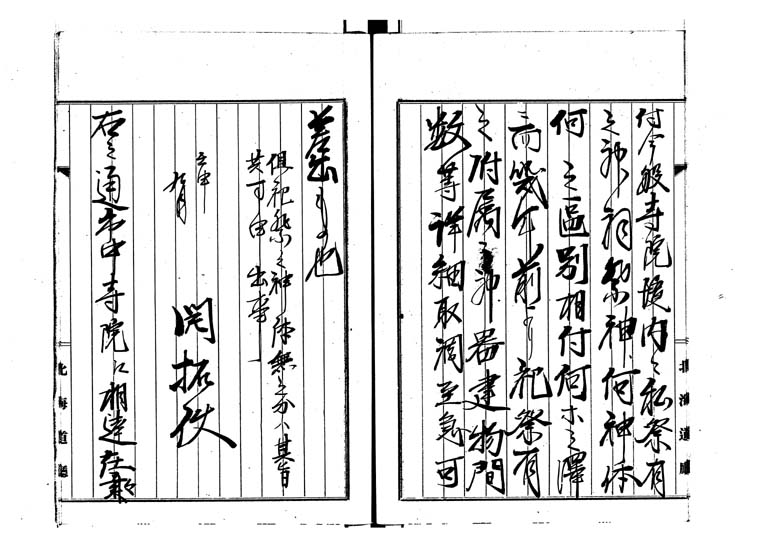 付今般寺院境内ニ私祭有
之神祠祭神何神体
何之区別相付何ホ之譯
而幾年前ゟ祀祭有
之附属之神器建物間
数等詳細取調至急可
差出もの也
但祀祭之神体無之分ハ其旨
共可申出事
壬申
九月
開拓使
右之通市中寺院江相達
北海道廳
北海道廳